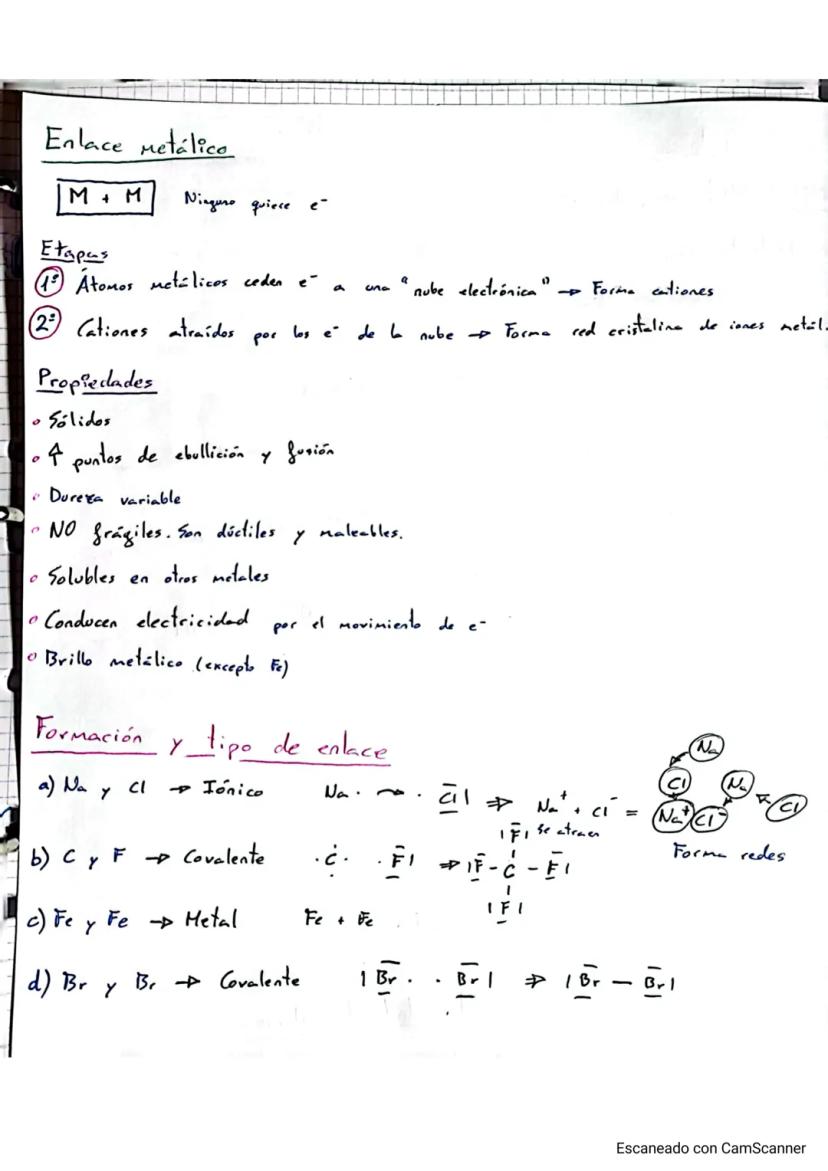 Enlace metálico
M + M Ninguno quiere e⁻
Etapas
1º Átomos metálicos ceden e⁻ a una "nube electrónica" → Forma cationes
2º Cationes atraídos por los e⁻ de la nube → Forma red cristalina de iones metál.
Propiedades
• Sólidos
• ↑ puntos de ebullición y fusión
• Dureza variable
• NO frágiles. Son dúctiles y maleables.
• Solubles en otros metales
• Conducen electricidad por el movimiento de e⁻
• Brillo metálico (excepto Fe)
Formación y tipo de enlace
a) Na y Cl → Iónico Na · · Cl ⇒ Na⁺ + Cl⁻ =
se atraen
Na Cl Na Cl Na⁺ Cl⁻
Forma redes
b) C y F → Covalente · C · · F ⇒ F - C - F
F
F
c) Fe y Fe → Metal Fe + Fe
d) Br y Br → Covalente | Br · · Br | ⇒ | Br — Br |
Escaneado con CamScanner